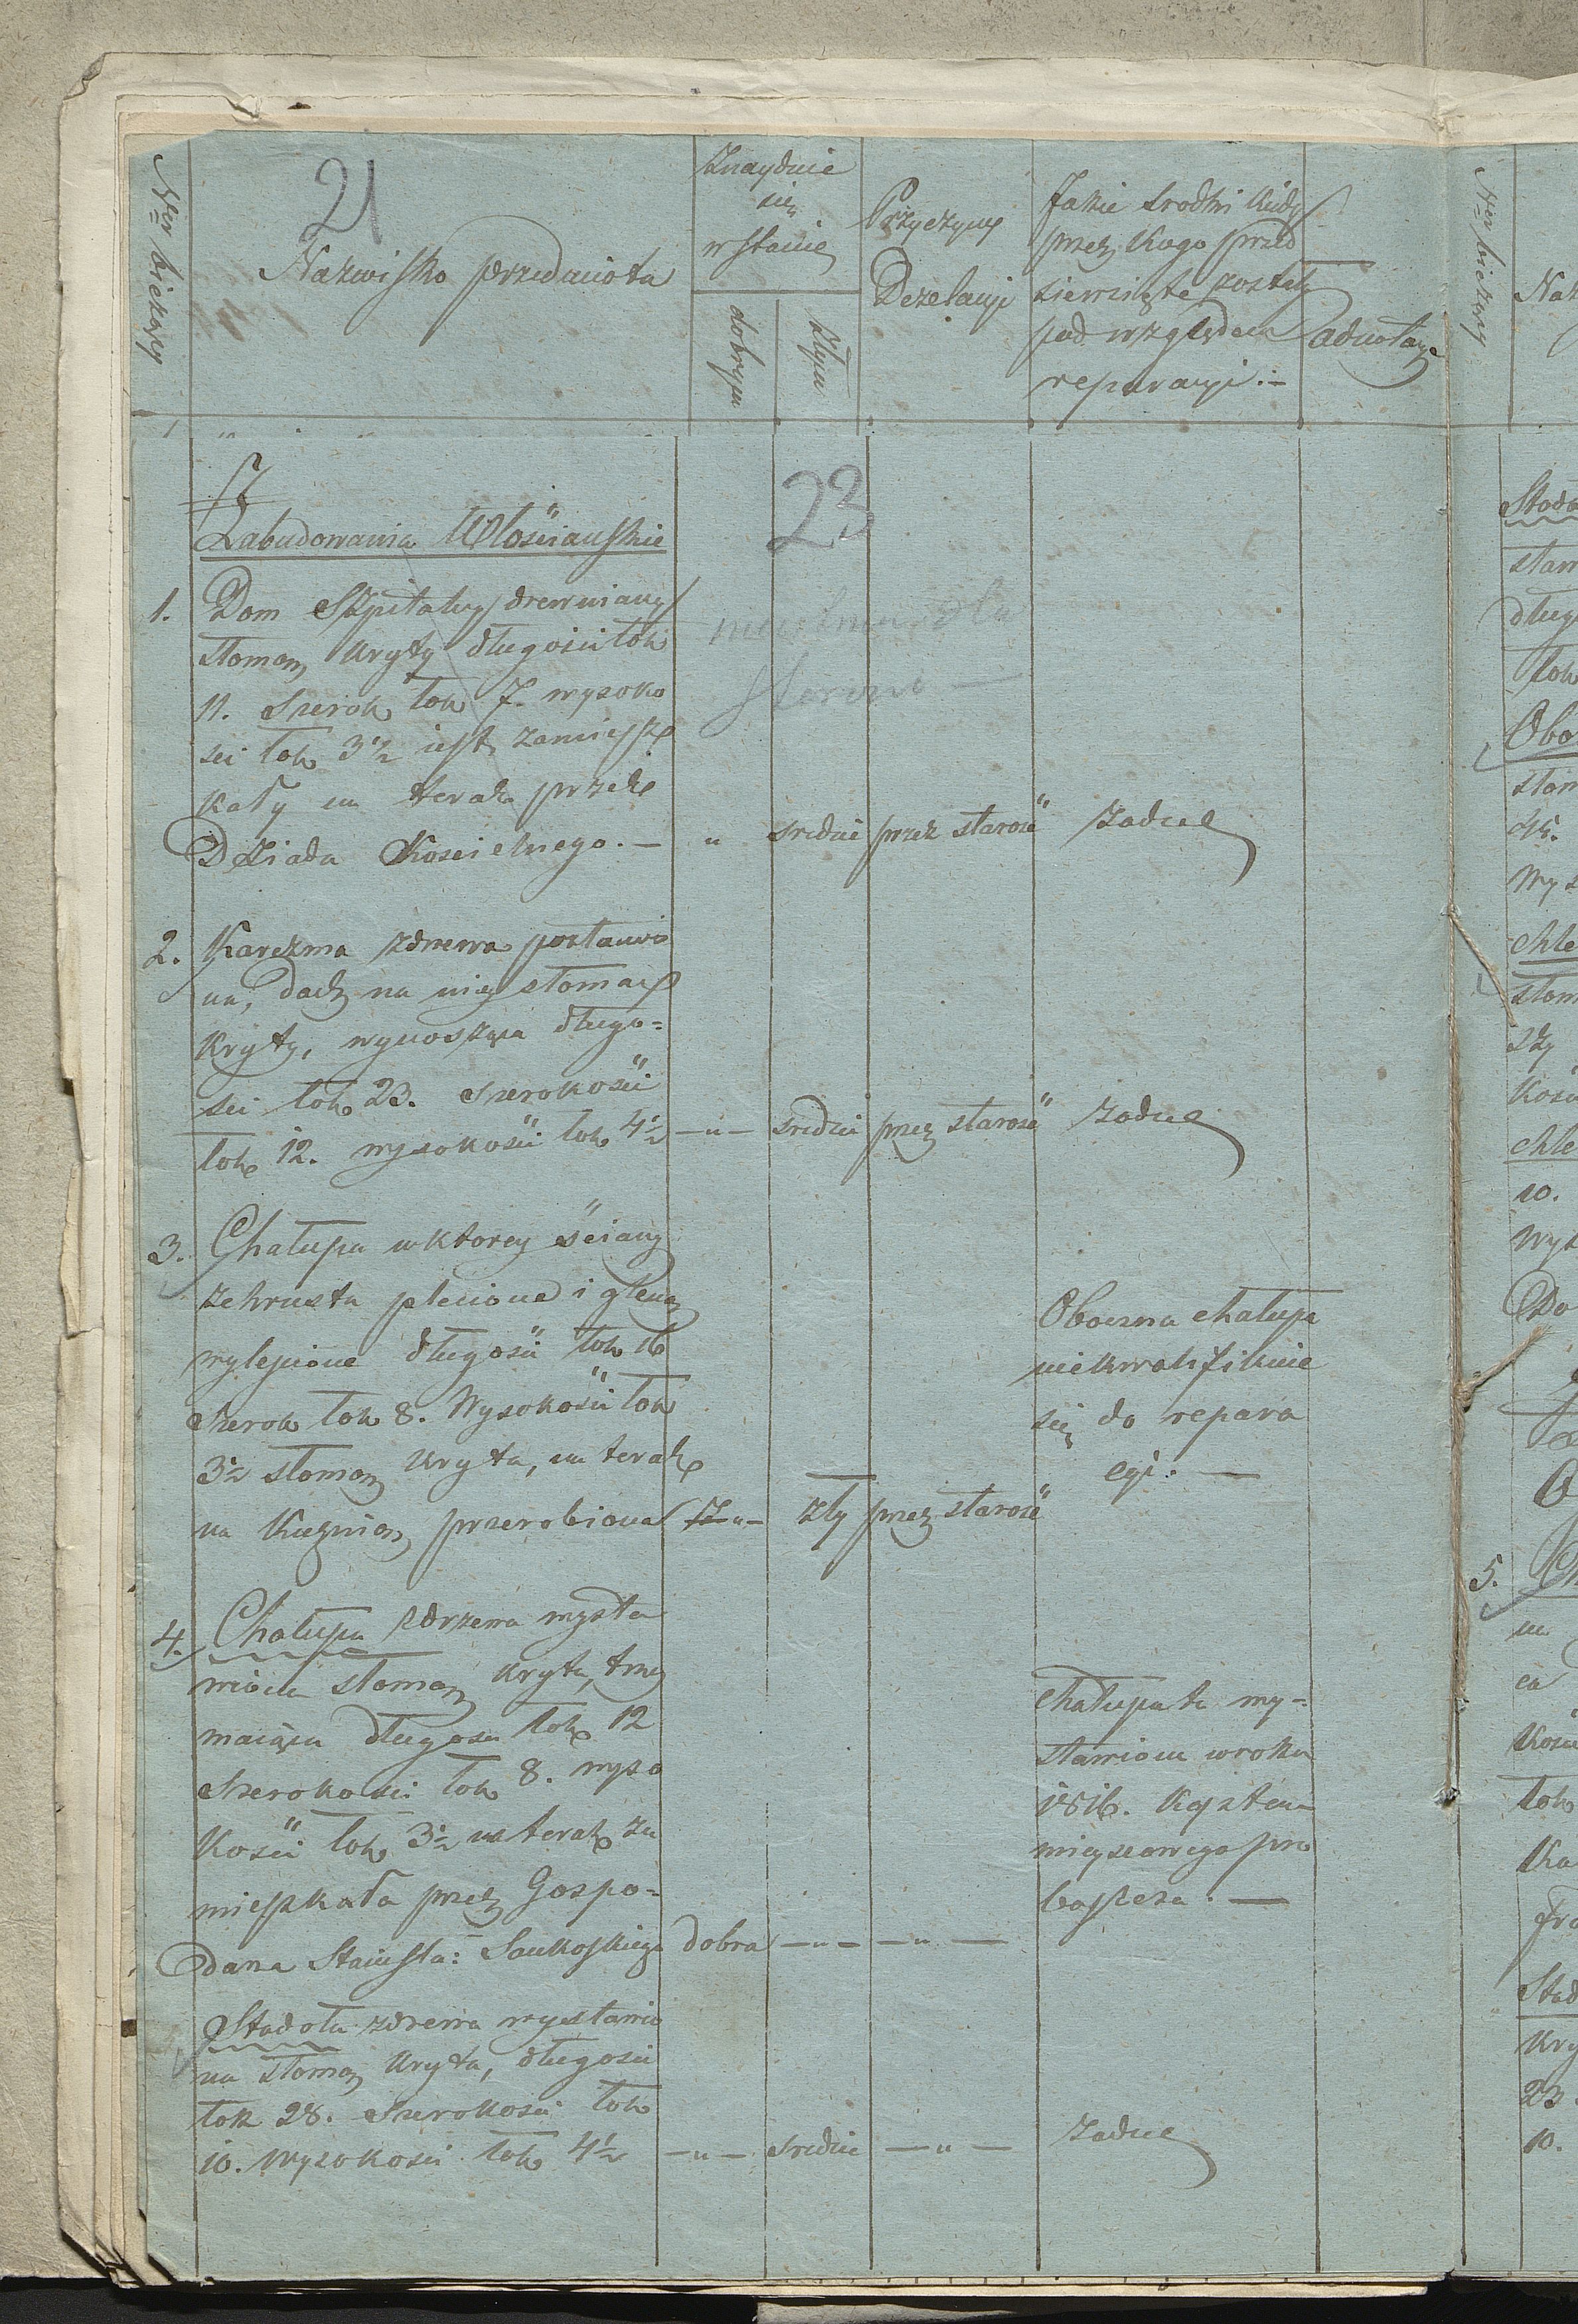 21
Ner bieżący
Nazwisko przedmiota
Znayduie
się
w stanie
dobrym
złym
Przyczyny
Dezelacyi
Jakie srodki kiedy
przez kogo przed
siewzięte zostały
pod względem
reperacyi. –
adnotacye
23
Zabudowania Włościanskie
1. Dom Szpitalny drewniany
słomą kryty długości łok
11. Szerok łok 7. wysoko
sci łok 3½ iest zamiesz
kały na teraz przez
Dziada Koscielnego. – " srednie przez starość żadne
2. Karczma zdrzewa postawio
na, dach na niey słomą
kryty, wynosząca długo=
sci łok 23. Szerokości
łok 12. wysokości łok 4½ – " – sredni przez starość żadne
3. Chałupa w ktorey ściany
zchrustu plecione i gleną
wylepione długości łok 16
Szerok łok 8. Wysokości łok
3½ słomą kryta, na teraz
na Kuznią przerobiona – " – zły przez starość
Oboczna chałupa
niekwalifikuie
się do repara
cyi. —
4. Chałupa zdrzewa wysta
wiona słomą kryta, trzy
maiąca długości łok 12
Szerokosci łok 8. wyso
kości łok 3½ na teraz za
mieszkała przez Gospo=
dara Stanisła: Sankoskiego dobra – " – – " –
chałupa ta wy=
stawiona wroku
1816. Kosztem
mieyscowego pro
boszcza. —
Stodoła zdrzewa wystawio
na słomą kryta, długosci
łok 28. Szerokosci łok
10. wysokosci łok 4½ – " – srednie – " – żadne
Ner bieżący
5.